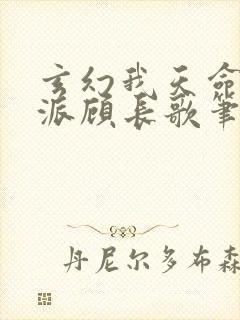 玄幻我天命
派顾长歌笔
丹尼尔多布森